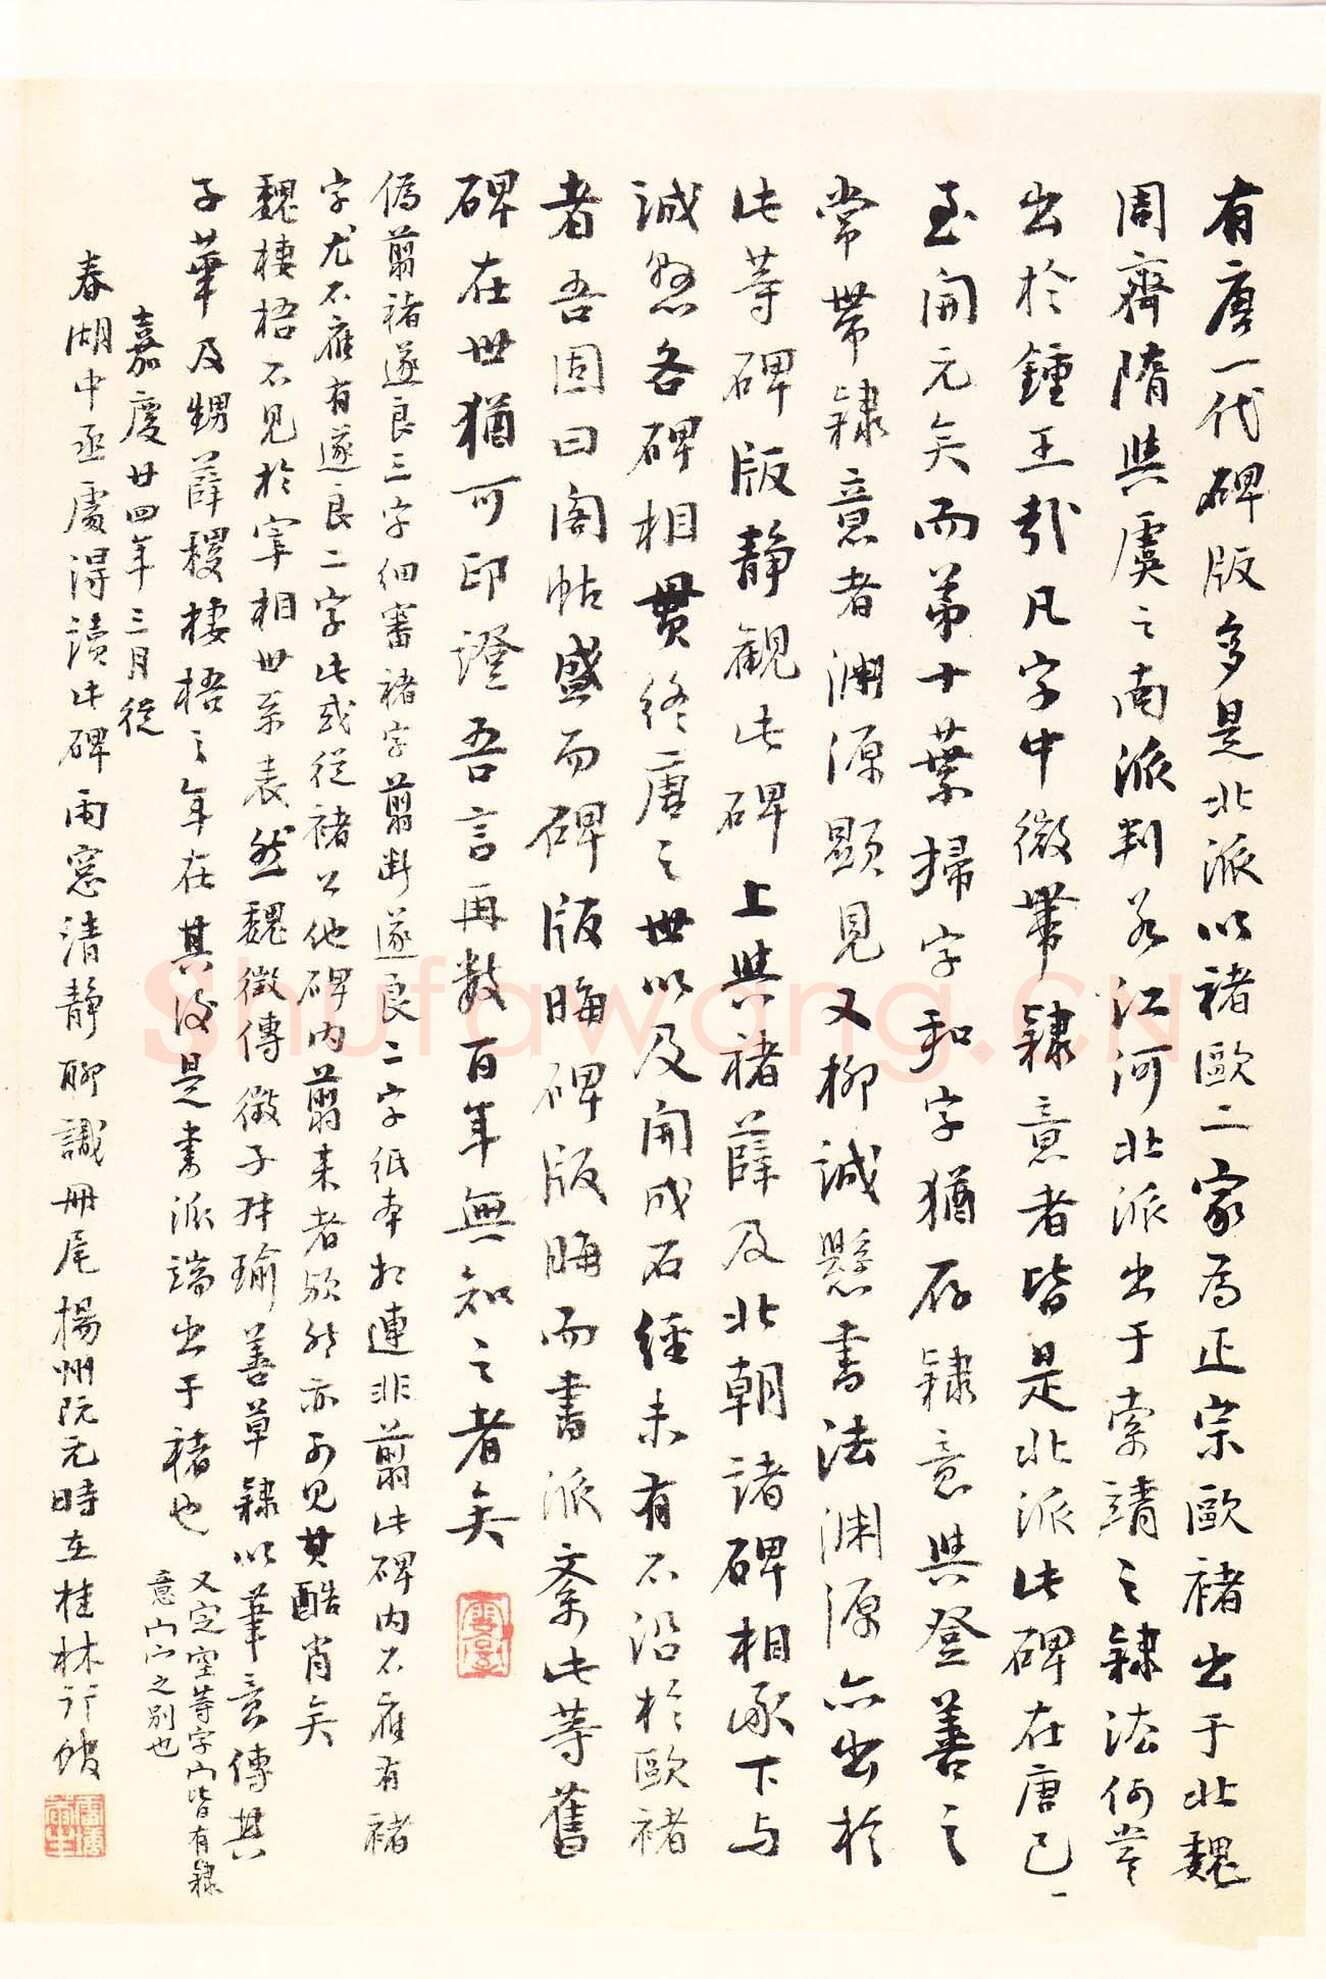 有唐一代碑版多是北派以褚歐二家為正宗歐褚出于北魏
周齊隋與虞之南派判若江河北派出于索靖之隸法何嘗
出於鍾王哉凡字中微帶隸意者皆是北派此碑在唐已
至開元矣而第十葉掃字和字猶存隸意與登善之
常帶隸意者淵源顯見又柳誠懸書法淵源亦出於
此等碑版靜觀此碑上與褚薛及北朝諸碑相承下与
誠懸各碑相貫終唐之世以及開成石經未有不沿於歐褚
者吾固曰閣帖盛而碑版晦碑版晦而書派紊此等舊
碑在世猶可印證吾言再數百年無知之者矣
偽翦褚遂良三字細審褚字翦斷遂良二字紙本相連非翦此碑內不應有褚
字尤不應有遂良二字此或從褚公他碑內翦來者歟然亦可見其酷肖矣
魏棲梧不見於宰相世系表然魏徵傳徵子叔瑜善草隸以筆意傳其
子華及甥薛稷棲梧之年在其後是書派端出于褚也
又定空等字宀皆有隸
意宀冖之別也
嘉慶廿四年三月從
春湖中丞處得讀此碑雨窓清靜聊識冊尾揚州阮元時在桂林行館
Shufawang.CN